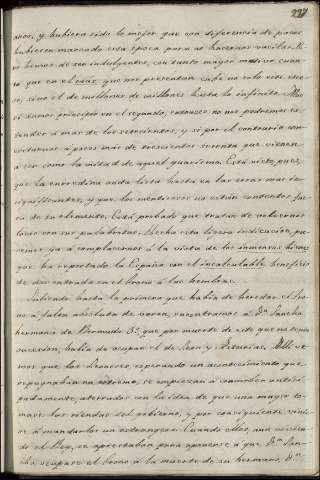 anos, y hubiera sido lo mejor que con diferencia de pocos
hubiesen marcado esta época para no hacernos vacilar.
hemos de ser indulgentes, con tanto mayor motivo cuan-
to que en el que nos presentan cabe no solo ese exce-
so, sino el de millones de millones hasta lo infinito.
principio en el segundo, entonces no nos podremos es-
tender á mas de los setecientos, y si por el contrario con-
á pocos mas de trescientos sesenta que vienen
á ser como la mitad de aquel guarismo. Está visto, pues,
que la enredadina anda lista hasta en las cosas mas in-
significantes, y que los mentirosos no están contentos fue-
ra de su elemento. Está probado que tratan de volvernos
locos con sus palabrotas. Hecha esta ligera indicacion, pa-
semos ya á complacernos á la vista de los inmensos bienes
que ha reportado la España con el incalculable beneficio
de dar entrada en el trono á las hembras.
Subiendo hasta la primera que habia de heredar el tro-
no á falta absoluta de varon, encontramos á Dª Sancha
hermana de Bermudo 3º, que por muerte de este que no tenia
sucesion, habia de ocupar el de Leon y Asturias. Allí ve-
mos que los leoneses, esperando un acontecimiento que
repugnaban en estremo, se empiezan á conmover antici-
padamente, aterrados con la idea de que una muger to-
mase las riendas del gobierno, y por consiguiente vinie-
se á mandarlos un estrangero. Cuando ellos, aun vivien-
do el Rey, se aprestaban para oponerse á que Dª San-
cha ocupase el trono á la muerte de su hermano, Dⁿ